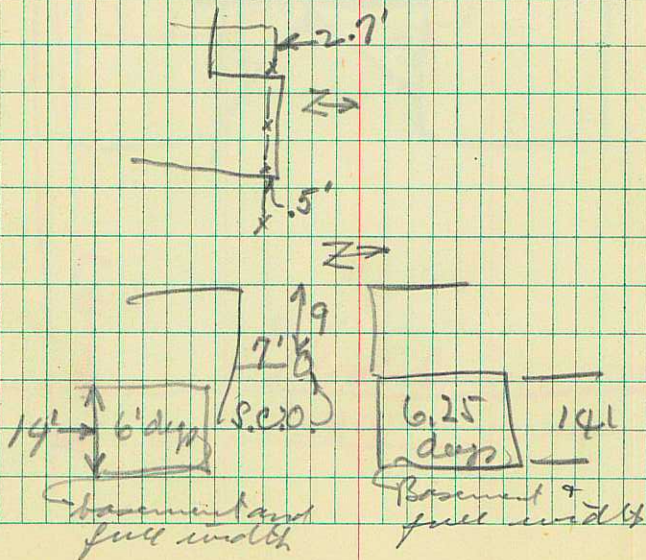 2.7'
Z→
.5'
Z→
9
7'
S.C.O.
14'
6' deep
6.25
deep
14'
basement and
full width
Basement &
full width